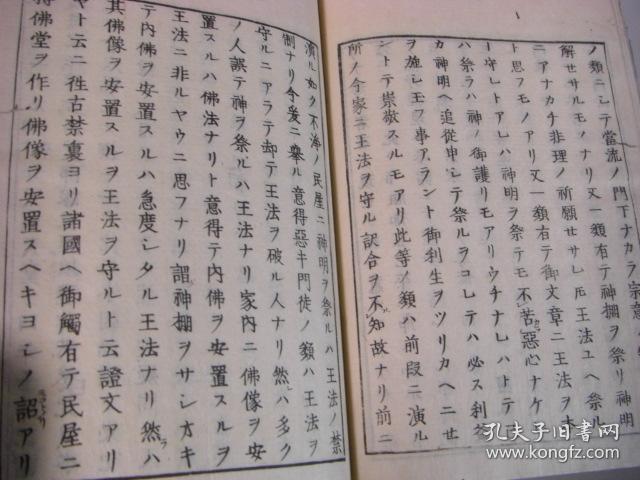 ノ類ニシテ當流ノ門下ナカラ宗意
解セサルモノナリ又一類有テ神棚ヲ祭リ神明
ニアナカチ非理ノ祈願セサレ𪜈王法ユヘ祭ル
ト思フモノアリ又一類有テ御文章ニ王法ヲ本
ー守レトアレハ神明ヲ祭テモ不苦惡心ナケ
ハ祭ラハ神ノ御護リモアリウチナレハトテ
カ神明ヘ追從申シテ祭ルヲコレテハ必ス利
ヲ施シ玉フ事アラント御利生ヲツリカヘニセ
ントテ崇敬スルモアリ此等ノ類ハ前段ニ演ル
所ノ今家ニ王法ヲ守ル訳合ヲ不知故ナリ前ニ
演ル如ク不淨ノ民屋ニ神明ヲ祭ルハ王法ノ禁
制ナリ今爰ニ擧ル意得惡キ門徒ノ類ハ王法ヲ
守ルニアラテ却テ王法ヲ破ル人ナリ然ハ多ク
ノ人誤テ神ヲ祭ルハ王法ナリ家内ニ佛像ヲ安
置スルハ佛法ナリト意得テ内佛ヲ安置スルヲ
王法ニ非ルヤウニ思フナリ謂神棚ヲサシオキ
テ内佛ヲ安置スルハ急度シタル王法ナリ然ハ
其佛像ヲ安置スルヲ王法ヲ守ルト云證文アリ
ヤト云ニ徃古禁裏ヨリ諸國ヘ御觸有テ民屋ニ
佛堂ヲ作リ佛像ヲ安置スヘキヨシノ詔アリ
孔夫子旧书网
www.kongfz.com